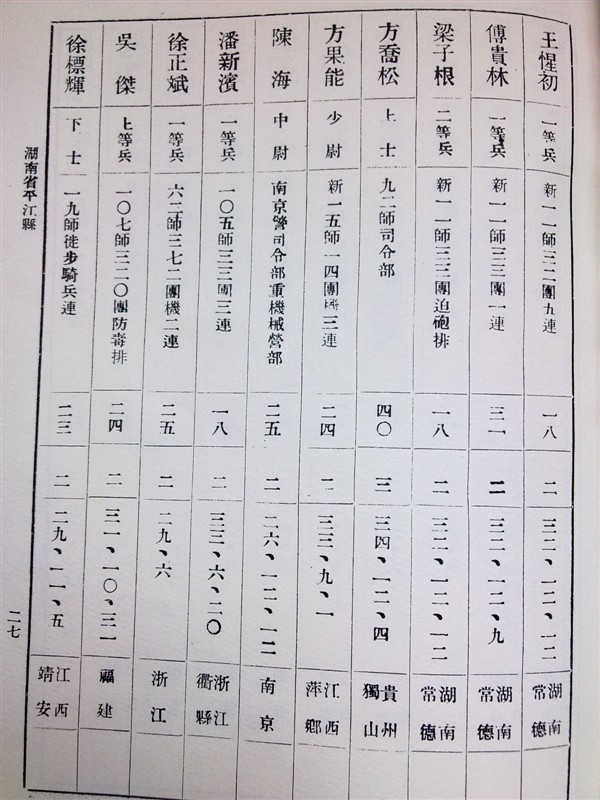 王惺初 一等兵 新一一師三二團五連 一八 二 三二、一二、一二 湖南常德
傅貴林 一等兵 新一一師三三團一連 三一 二 三二、一二、九 湖南常德
梁子根 二等兵 新一一師三三團迫砲排 一八 二 三二、一二、一二 湖南常德
方喬松 上士 九二師司令部 四〇 三 三四、一二、四 貴州獨山
方果能 少尉 新一五師一四團 三連 二四 二 三三、九、一 江西萍鄉
陳海 中尉 南京警司令部重機械營部 二五 二 二六、一二、一二 南京
潘新濱 一等兵 一〇五師三三團三連 一八 二 三三、六、二〇 浙江衢縣
徐正斌 一等兵 六二師三七二團機二連 二五 二 二九、六 浙江
吳傑 上等兵 一〇七師三二〇團防毒排 二四 二 三一、一〇、三一 福建
徐標輝 下士 一九師徙步騎兵連 二三 二 二九、一一、五 江西靖安
湖南省平江縣
二七